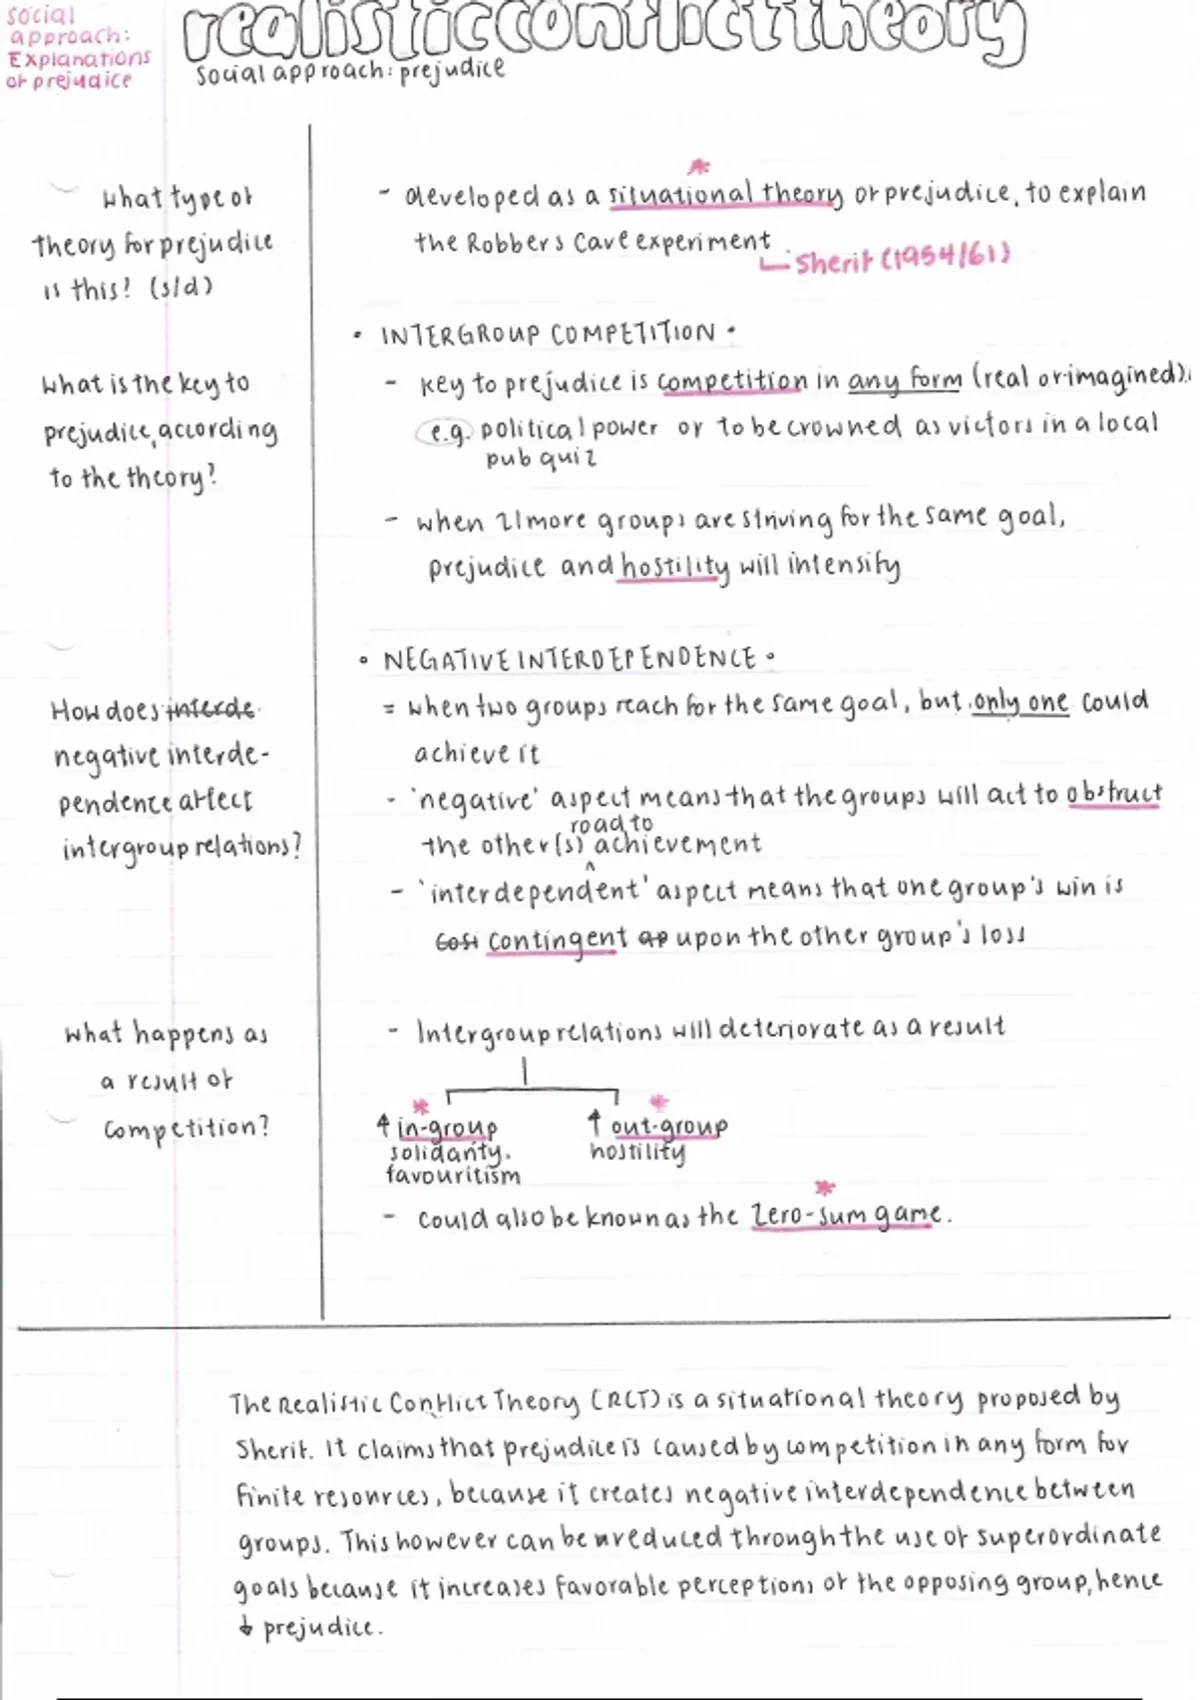 social
approach:
Explanations
of prejudice
realistic conflict theory
social approach: prejudice
What type of
theory for prejudice
is this? (s/d)
- developed as a situational theory of prejudice, to explain
the Robbers Cave experiment
Sherif (1954/61)
• INTERGROUP COMPETITION •
What is the key to
prejudice, according
to the theory?
- key to prejudice is competition in any form (real or imagined).
e.g. political power or to be crowned as victors in a local
pub quiz
- when 2/more groups are striving for the same goal,
prejudice and hostility will intensify
• NEGATIVE INTERDEPENDENCE •
How does interde
negative interde-
pendence affect
intergroup relations?
= when two groups reach for the same goal, but only one could
achieve it
- 'negative' aspect means that the groups will act to obstruct
road to
the other(s) achievement
- 'interdependent' aspect means that one group's win is
contingent upon the other group's loss
What happens as
a result of
competition?
- Intergroup relations will deteriorate as a result
↑ in-group
solidarity.
favouritism
↑ out-group
hostility
- could also be known as the zero-sum game.
The Realistic Conflict Theory (RCT) is a situational theory proposed by
Sherif. It claims that prejudice is caused by competition in any form for
finite resources, because it creates negative interdependence between
groups. This however can be reduced through the use of superordinate
goals because it increases favorable perceptions of the opposing group, hence
↓ prejudice.